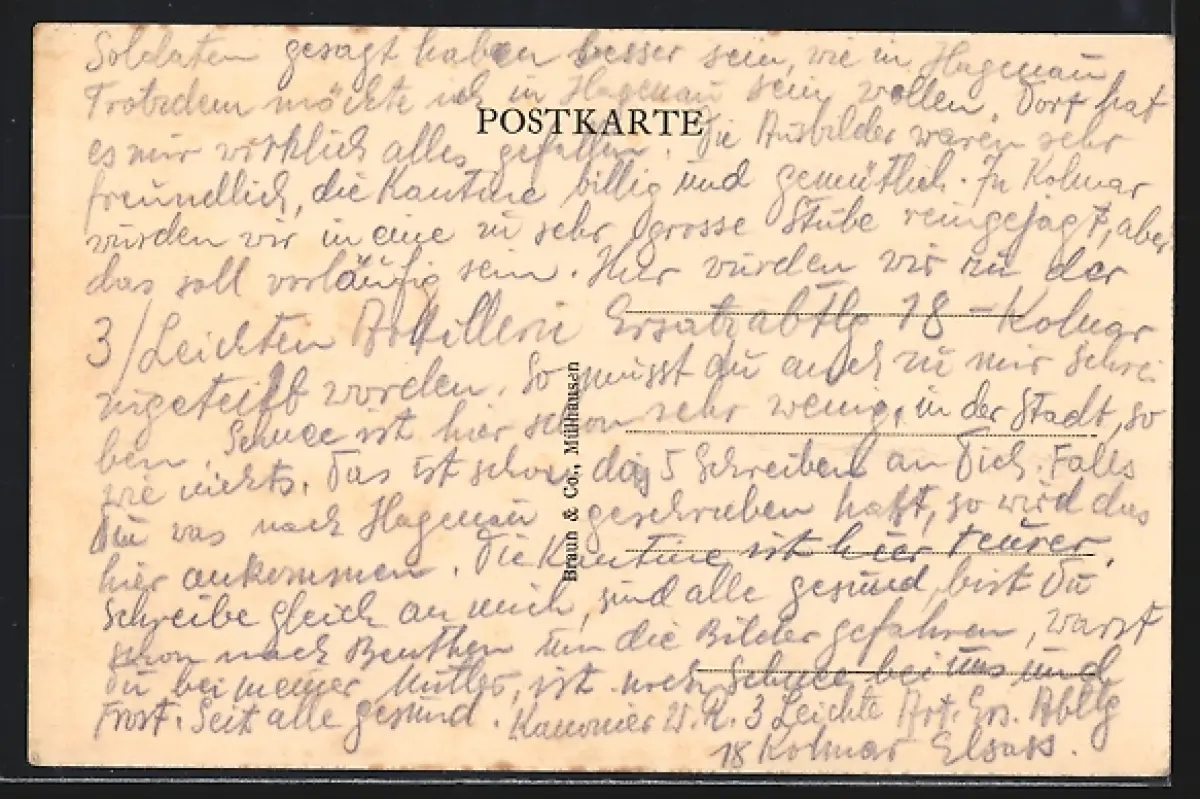 Soldaten gesagt haben besser sein, wie in Hagenau
Trotzdem möchte ich in Hagenau sein wollen. Dort hat
POSTKARTE
es mir wirklich alles gefallen. Die Ausbilder waren sehr
freundlich, die Kantine billig und gemütlich. In Kolmar
wurden wir in eine zu sehr grosse Stube reingejagt, aber
das soll vorläufig sein. Hier wurden wir zu der
3/Leichten Artillerie Ersatzabtlg 18 - Kolmar
zugeteilt worden. So musst du auch zu mir schrei
ben. Schnee ist hier schon sehr wenig, in der Stadt, so
wie nichts. Das ist schon das 5 Schreiben an Dich. Falls
Du was nach Hagenau geschrieben hast, so wird das
hier ankommen. Die Kantine ist hier teurer.
Schreibe gleich an mich, sind alle gesund, bist Du
schon nach Beuthen um die Bilder gefahren, warst
Du bei meiner Mutter, ist noch Schnee bei uns und
Frost. Seit alle gesund. Kanonier W. R. 3 Leichte Art. Ers. Abtlg
18 Kolmar Elsass.
Braun & Co., Mülhausen